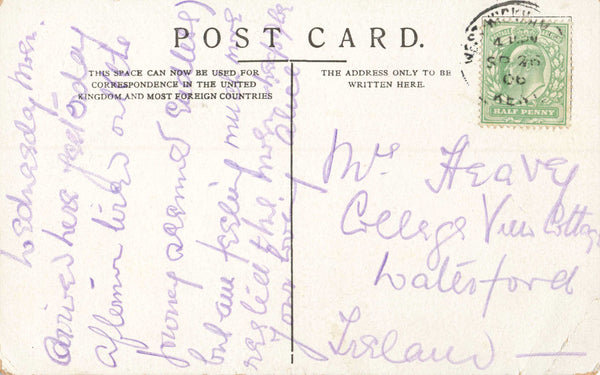 POST CARD.
THIS SPACE CAN NOW BE USED FOR
CORRESPONDENCE IN THE UNITED
KINGDOM AND MOST FOREIGN COUNTRIES
THE ADDRESS ONLY TO BE
WRITTEN HERE.
HALF PENNY
SP 26
06
Wednesday
arrived here
afternoon tired out the
journey seemed endless
but am feeling much more
rested this
your love
Mrs Heavey
College View Cottage
Waterford
Ireland —